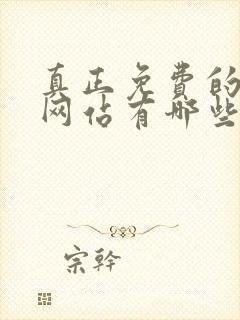 真正免费的
网佔有哪些
宗幹